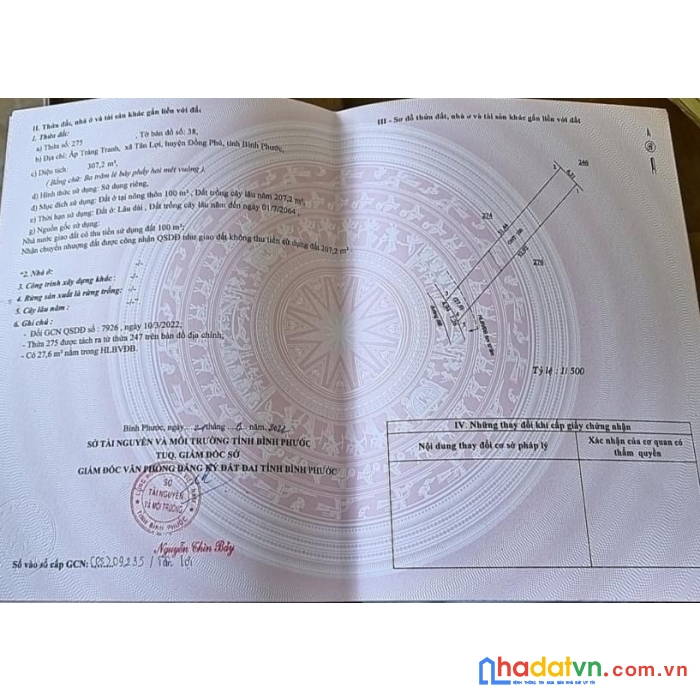 II. Thửa đất, nhà ở và tài sản khác gắn liền với đất
1. Thửa đất:
a) Thửa số: 275 , Tờ bản đồ số: 38,
b) Địa chỉ: Ấp Trảng Tranh, xã Tân Lợi, huyện Đồng Phú, tỉnh Bình Phước,
c) Diện tích: 307,2 m²,
( Bằng chữ: Ba trăm lẻ bảy phẩy hai mét vuông ),
d) Hình thức sử dụng: Sử dụng riêng,
đ) Mục đích sử dụng: Đất ở tại nông thôn 100 m² , Đất trồng cây lâu năm 207,2 m²,
e) Thời hạn sử dụng: Đất ở: Lâu dài , Đất trồng cây lâu năm đến ngày 01/7/2064 ,
g) Nguồn gốc sử dụng:
Nhà nước giao đất có thu tiền sử dụng đất 100 m² ;
Nhận chuyển nhượng đất được công nhận QSDĐ như giao đất không thu tiền sử dụng đất 207,2 m² ;
*2. Nhà ở: -/-
3. Công trình xây dựng khác: -/-
4. Rừng sản xuất là rừng trồng: -/-
5. Cây lâu năm : -/-
6. Ghi chú :
- Đổi GCN QSDĐ số : 7926 , ngày 10/3/2022;
- Thửa 275 được tách ra từ thửa 247 trên bản đồ địa chính;
- Có 27,6 m² nằm trong HLBVĐB.
Bình Phước, ngày tháng năm
SỞ TÀI NGUYÊN VÀ MÔI TRƯỜNG TỈNH BÌNH PHƯỚC
TUQ. GIÁM ĐỐC SỞ
GIÁM ĐỐC VĂN PHÒNG ĐĂNG KÝ ĐẤT ĐAI TỈNH BÌNH PHƯỚC
SỞ
TÀI NGUYÊN
VÀ MÔI TRƯỜNG
TỈNH BÌNH PHƯỚC
Nguyễn Thìn Bảy
Số vào sổ cấp GCN: 209235 / Tân Lợi
III - Sơ đồ thửa đất, nhà ở và tài sản khác gắn liền với đất
246
274
276
Tỷ lệ : 1/ 500
IV. Những thay đổi khi cấp giấy chứng nhận
Nội dung thay đổi cơ sở pháp lý
Xác nhận của cơ quan có
thẩm quyền
nhadatvn.com.vn